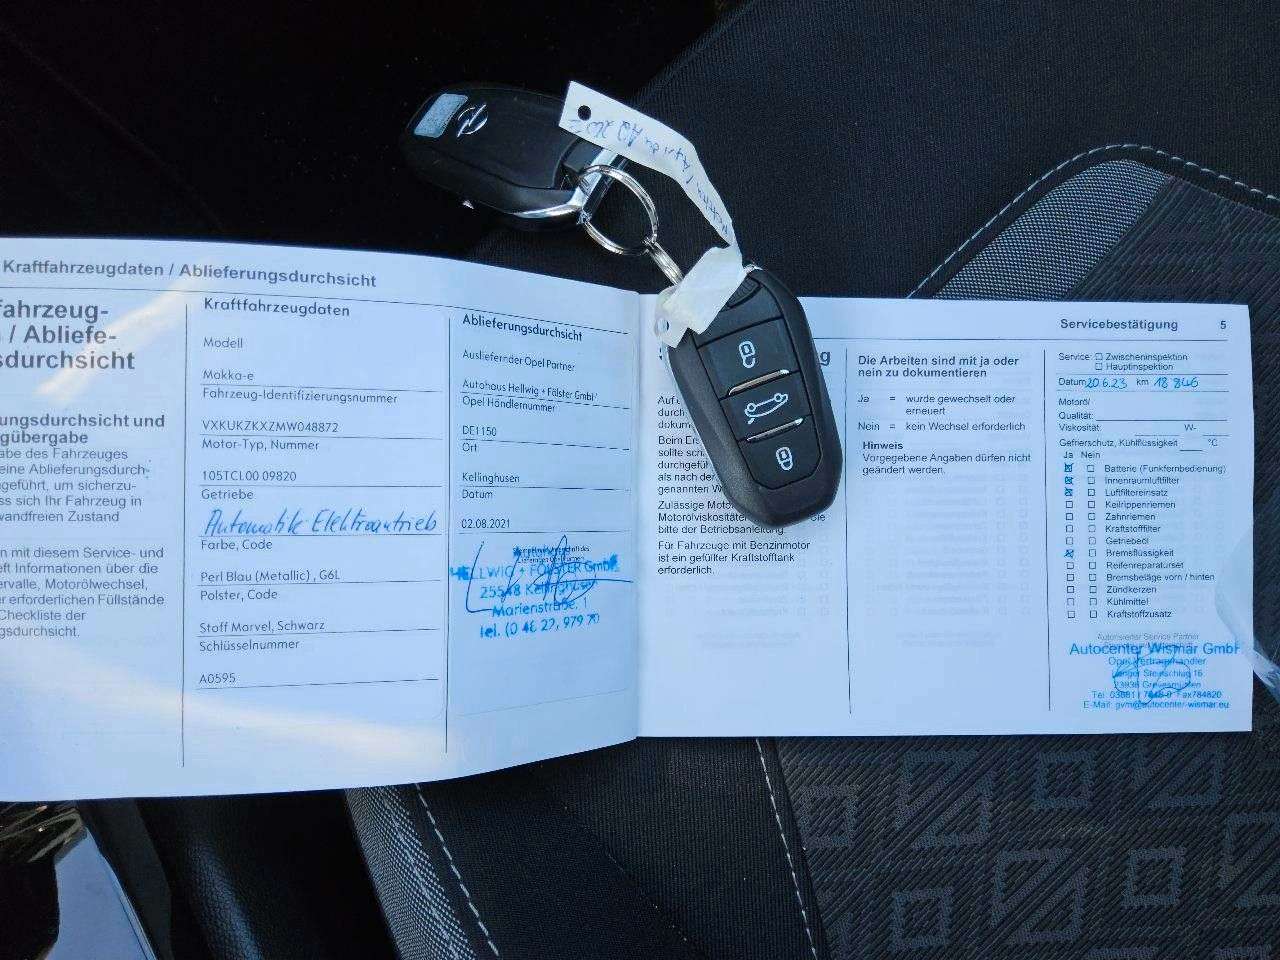 Kraftfahrzeugdaten / Ablieferungsdurchsicht
fahrzeug-
/ Abliefe-
sdurchsicht
ungsdurchsicht und
gübergabe
be des Fahrzeuges
eine Ablieferungsdurch-
geführt, um sicherzu-
ss sich Ihr Fahrzeug in
wandfreien Zustand
n mit diesem Service- und
eft Informationen über die
ervalle, Motorölwechsel,
er erforderlichen Füllstände
Checkliste der
gsdurchsicht.
Kraftfahrzeugdaten
Modell
Mokka-e
Fahrzeug-Identifizierungsnummer
VXKUKZKXZMW048872
Motor-Typ, Nummer
105TCL00 09820
Getriebe
Automatik Elektroantrieb
Farbe, Code
Perl Blau (Metallic) , G6L
Polster, Code
Stoff Marvel, Schwarz
Schlüsselnummer
A0595
Ablieferungsdurchsicht
Ausliefernder Opel Partner
Autohaus Hellwig + Fölster GmbH
Opel Händlernummer
DE1150
Ort
Kellinghusen
Datum
02.08.2021
HELLWIG + FÖLSTER GmbH
25548 Kellinghusen
Marienstraße 1
Tel. (0 48 22)
Auf
durch
dokum
Beim Ers
sollte sch
durchgefü
als nach de
genannten W
Zulässige Moto
Motorölviskositäten Sie
bitte der Betriebsanleitung
Für Fahrzeuge mit Benzinmotor
ist ein gefüllter Kraftstofftank
erforderlich.
Die Arbeiten sind mit ja oder
nein zu dokumentieren
Ja = wurde gewechselt oder
erneuert
Nein = kein Wechsel erforderlich
Hinweis
Vorgegebene Angaben dürfen nicht
geändert werden.
Servicebestätigung 5
Service: Zwischeninspektion
Hauptinspektion
Datum 20.6.23 km 18 846
Motoröl
Qualität:
Viskosität: W-
Gefrierschutz, Kühlflüssigkeit °C
Ja Nein
Batterie (Funkfernbedienung)
Innenraumluftfilter
Luftfiltereinsatz
Keilrippenriemen
Zahnriemen
Kraftstofffilter
Getriebeöl
Bremsflüssigkeit
Reifenreparaturset
Bremsbeläge vorn / hinten
Zündkerzen
Kühlmittel
Kraftstoffzusatz
Autorisierter Service Partner
Autocenter Wismar GmbH
Opel Vertragshändler
Langer Steinschlag 16
23936 Grevesmühlen
Tel. 03881 / 7848-0 Fax784820
E-Mail: gvm@autocenter-wismar.eu